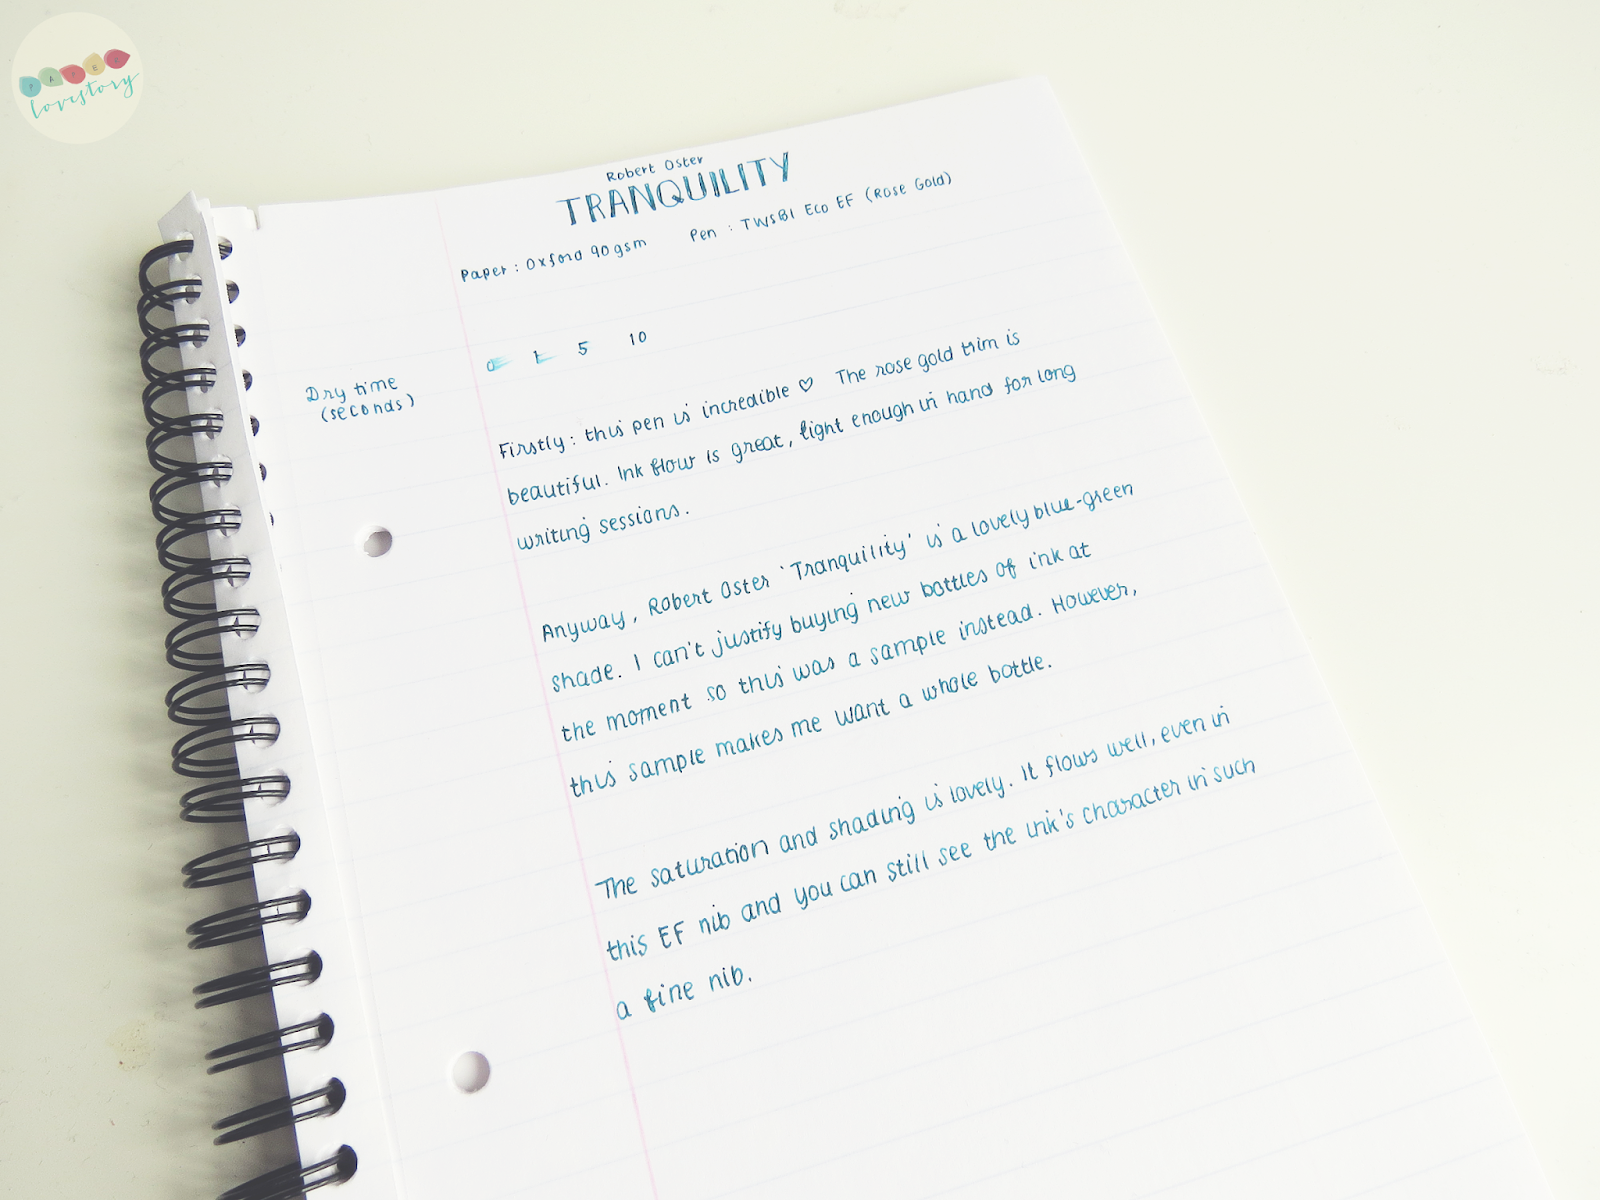 PAPER
lovestory
Robert Oster
TRANQUILITY
Paper : Oxford 90gsm Pen : TWSBI Eco EF (Rose Gold)
Dry time
(seconds)
0 1 5 10
Firstly : this pen is incredible ♡ The rose gold trim is
beautiful. Ink flow is great, light enough in hand for long
writing sessions.
Anyway, Robert Oster 'Tranquility' is a lovely blue-green
shade. I can't justify buying new bottles of ink at
the moment so this was a sample instead. However,
this sample makes me want a whole bottle.
The saturation and shading is lovely. It flows well, even in
this EF nib and you can still see the ink's character in such
a fine nib.